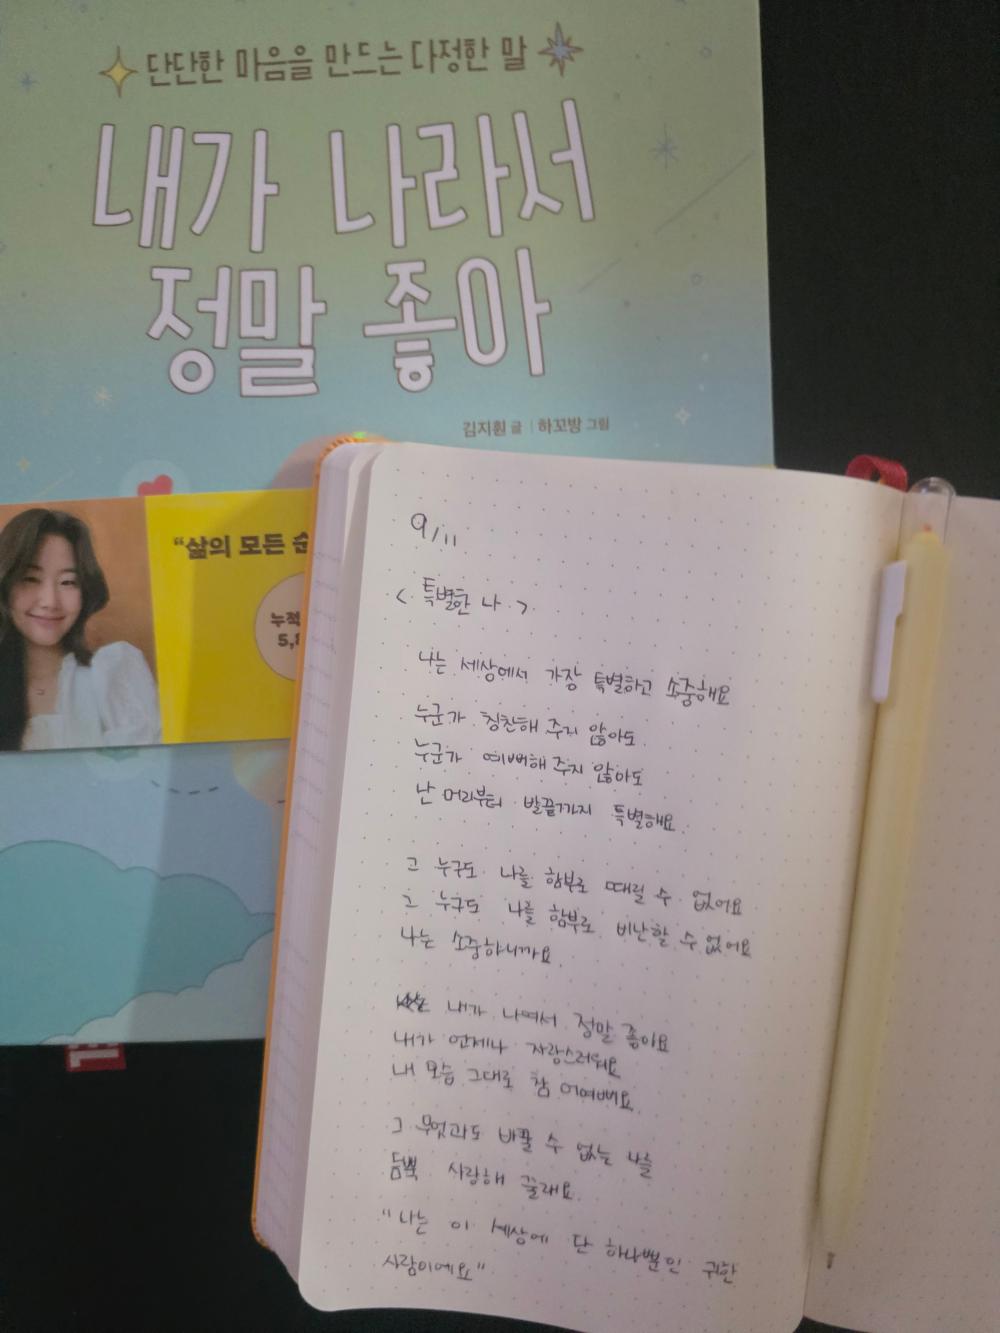 단단한 마음을 만드는 다정한 말
내가 나라서
정말 좋아
김지훤 글 | 하꼬방 그림
"삶의 모든 순
누적
5,8
9/11
<특별한 나>
나는 세상에서 가장 특별하고 소중해요
누군가 칭찬해 주지 않아도
누군가 예뻐해 주지 않아도
난 머리부터 발끝까지 특별해요
그 누구도 나를 함부로 때릴 수 없어요
그 누구도 나를 함부로 비난할 수 없어요
나는 소중하니까요
내가 나여서 정말 좋아요
내가 언제나 자랑스러워요
내 모습 그대로 참 어여뻐요
그 무엇과도 바꿀 수 없는 나를
듬뿍 사랑해 줄래요
"나는 이 세상에 단 하나뿐인 귀한
사람이에요"